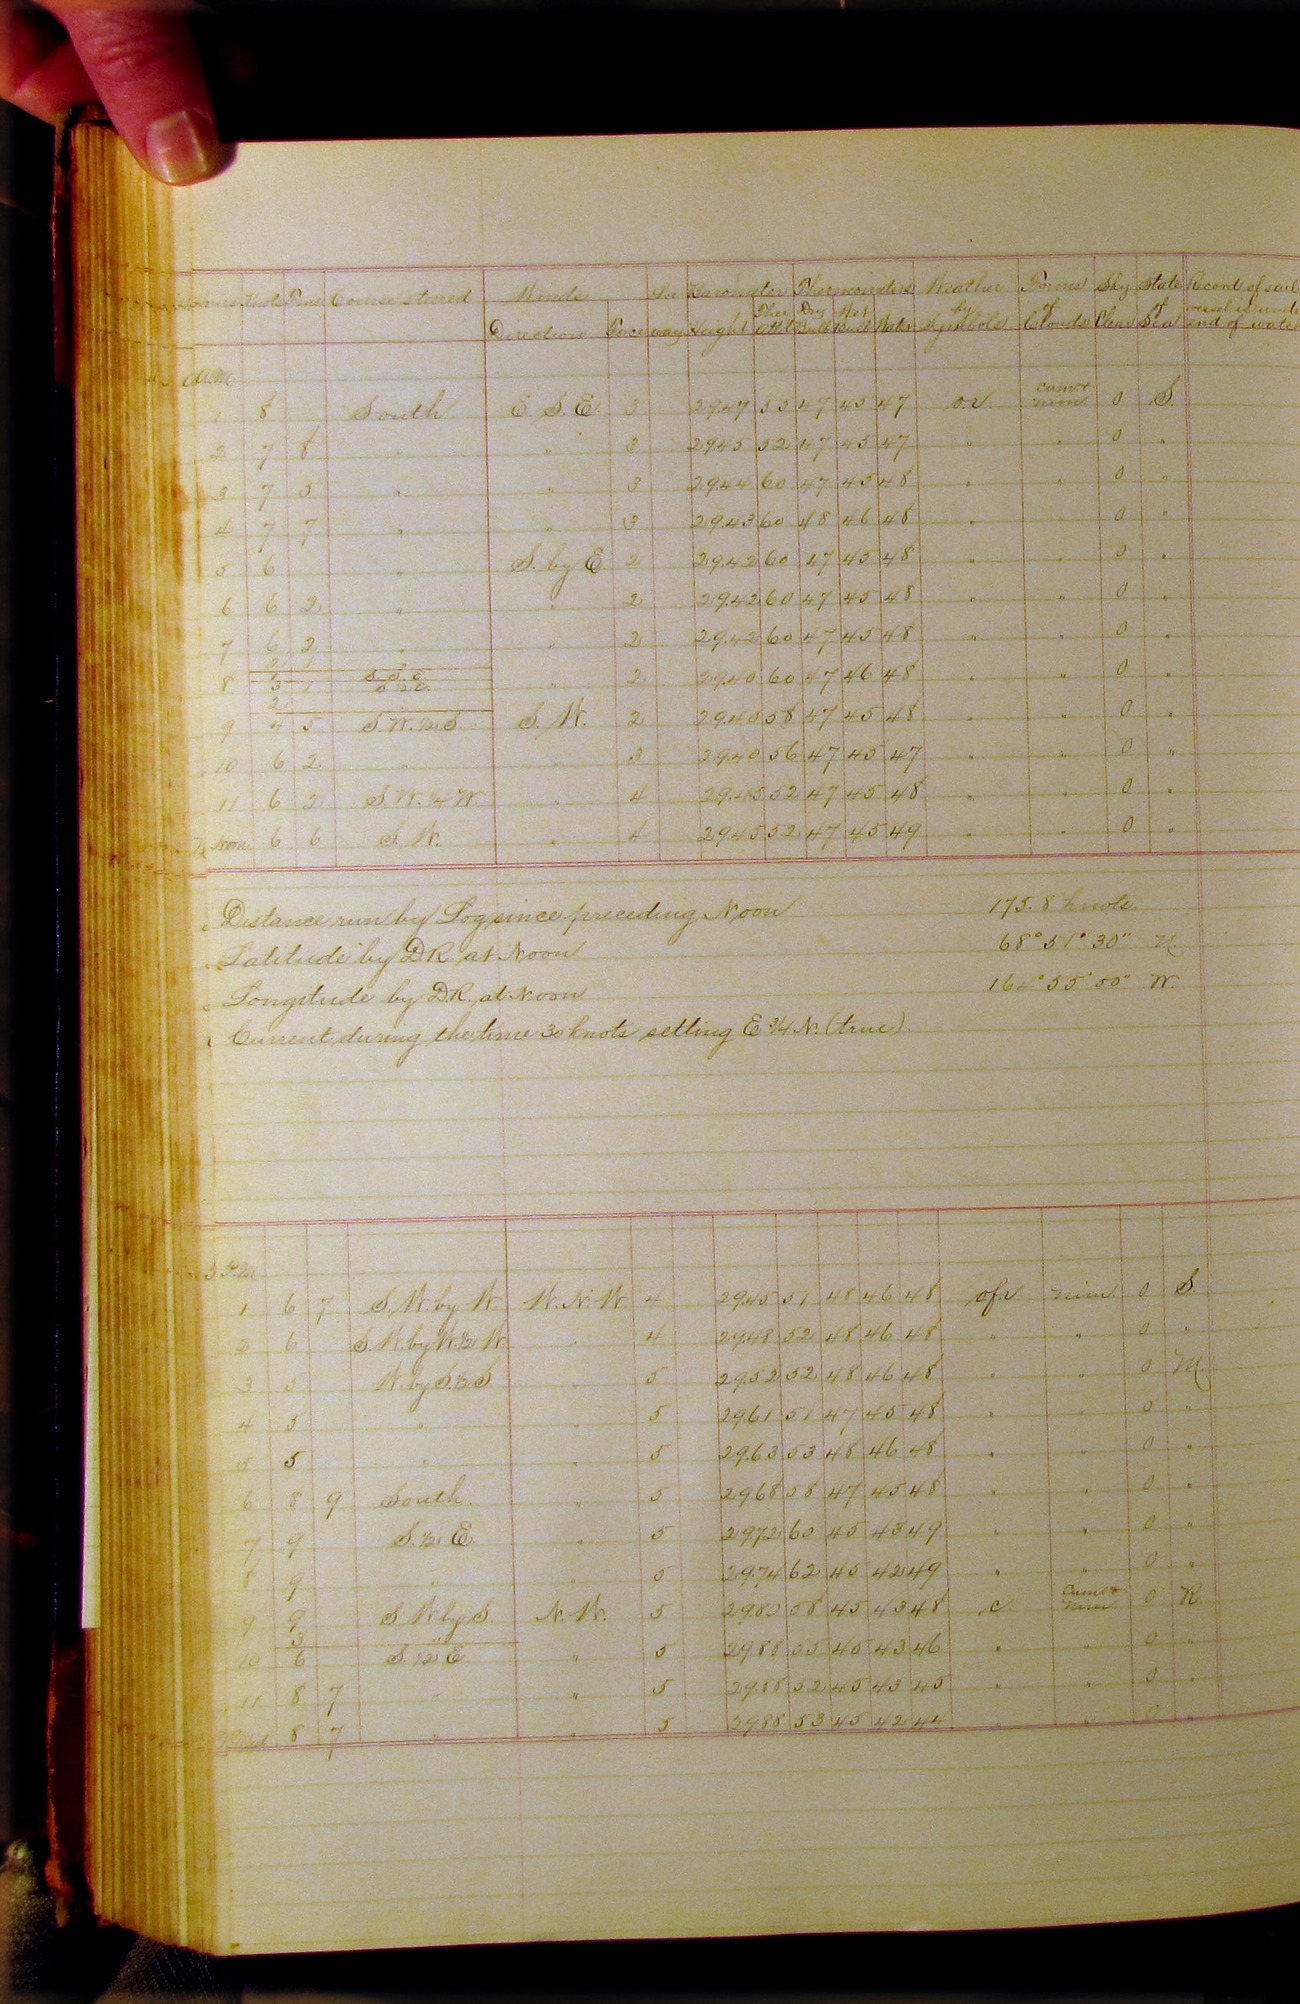 Hours Knots Tenths Course steered Winds Lee Barometer Thermometers Weather Forms Sky State Records of sail
Direction Force way Height Ther Att Dry Bulb Wet Bulb Water by Symbols of Clouds Clear of Sea vessel is under end of watch
A.M.
cum &
1 8 South E. S. E. 3 29.47 53 47 45 47 o.r. nim 0 S.
2 7 8 " " 3 29.45 52 47 45 47 " " 0 "
3 7 5 " " 3 29.44 60 47 45 48 " " 0 "
4 7 7 " " 3 29.43 60 48 46 48 " " 0 "
5 6 " S. by E 2 29.42 60 47 45 48 " " 0 "
6 6 2 " " 2 29.42 60 47 45 48 " " 0 "
7 6 2 " " 2 29.42 60 47 45 48 " " 0 "
2 1 "
8 3 1 " 2 29.40 60 47 46 48 " " 0 "
2
9 4 5 S. W. 1/2 S. S. W. 2 29.40 58 47 45 48 " " 0 "
10 6 2 " " 3 29.40 56 47 45 47 " " 0 "
11 6 2 S. W. 1/4 W. " 4 29.45 52 47 45 48 " " 0 "
Noon 6 6 S. W. " 4 29.45 52 47 45 49 " " 0 "
Distance run by Log since preceding Noon 175.8 knots.
Latitude by D.R. at Noon 68° 51' 30" N.
Longitude by D.R. at Noon 164° 55' 00" W.
Current during the time 30 knots setting E 3/4 N. (true).
P.M.
1 6 7 S. W. by W. W. N. W 4 29.45 51 48 46 48 ofr nim 0 S.
2 6 S. W. by W. 1/2 W. " 4 29.48 52 48 46 48 " " 0 "
3 5 W. by S. 1/2 S " 5 29.52 52 48 46 48 " " 0 M.
4 5 " " 5 29.61 51 47 45 48 " " 0 "
5 5 " " 5 29.63 53 48 46 48 " " 0 "
6 8 9 South. " 5 29.68 58 47 45 48 " " 0 "
7 9 S. 1/2 E. " 5 29.72 60 45 43 49 " " 0 "
8 9 " " 5 29.74 62 45 42 49 " " 0 "
cum &
9 9 S. W. by S. N. W. 5 29.80 58 45 43 48 c. nim 0 R.
3 "
10 6 S. 1/2 E. " 5 29.88 55 45 43 46 " " 0 "
11 8 7 " " 5 29.88 52 45 43 45 " " 0 "
8 7 " " 5 29.88 53 45 42 44 " " 0 "